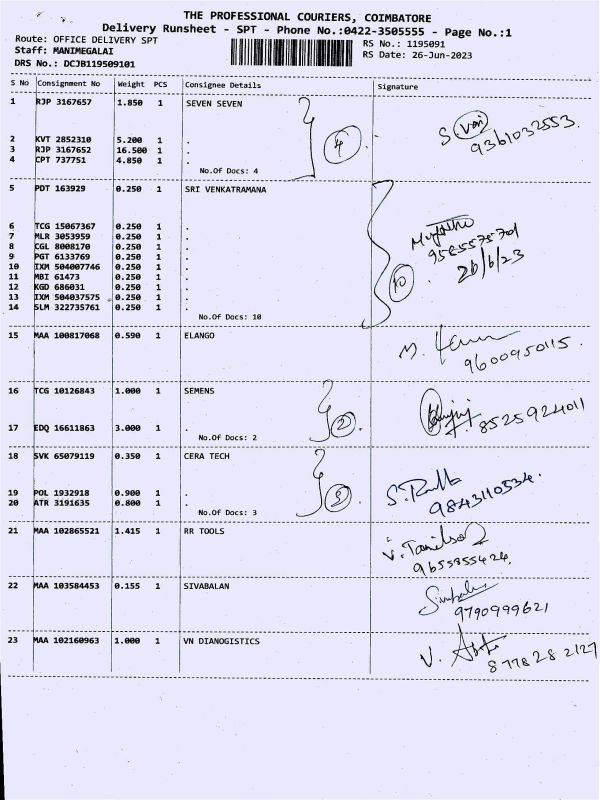 THE PROFESSIONAL COURIERS, COIMBATORE
Delivery Runsheet - SPT - Phone No.:0422-3505555 - Page No.:1
Route: OFFICE DELIVERY SPT
RS No.: 1195091
Staff: MANIMEGALAI
RS Date: 26-Jun-2023
DRS No.: DCJB119509101
S No Consignment No Weight PCS Consignee Details Signature
1 RJP 3167657 1.850 1 SEVEN SEVEN
S. Vani
9361032553.
4
2 KVT 2852310 5.200 1 .
3 RJP 3167652 16.500 1 .
4 CPT 737751 4.850 1 .
No.Of Docs: 4
5 PDT 163929 0.250 1 SRI VENKATRAMANA
6 TCG 15067367 0.250 1 .
7 MLR 3053959 0.250 1 .
8 CGL 8008170 0.250 1 .
9 PGT 6133769 0.250 1 .
10 IXM 504007746 0.250 1 .
11 MBI 61473 0.250 1 .
12 KGD 686031 0.250 1 .
13 IXM 504037575 0.250 1 .
14 SLM 322735761 0.250 1 .
26/6/23
10
No.Of Docs: 10
15 MAA 100817068 0.590 1 ELANGO
9600950115.
16 TCG 10126843 1.000 1 SEMENS
2
8525924011
17 EDQ 16611863 3.000 1 .
No.Of Docs: 2
18 SVK 65079119 0.350 1 CERA TECH
9843110534.
19 POL 1932918 0.900 1 .
20 ATR 3191635 0.800 1 .
No.Of Docs: 3
21 MAA 102865521 1.415 1 RR TOOLS
9655355424.
22 MAA 103584453 0.155 1 SIVABALAN
9790999621
23 MAA 102160963 1.000 1 VN DIANOGISTICS
8778282127